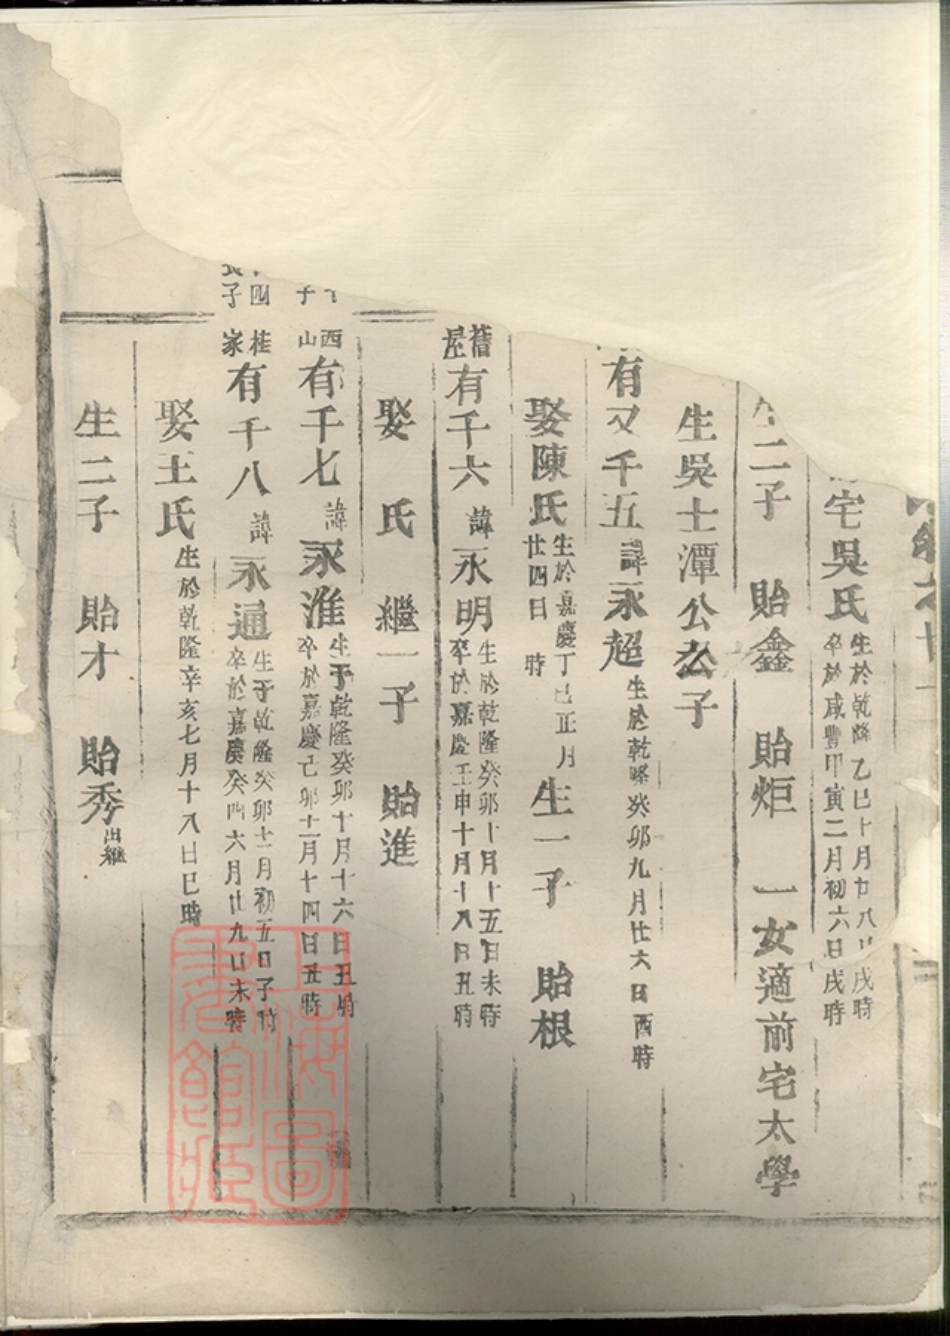 宅吳氏 生於乾隆乙巳十月廿八日戌時 卒於咸豐甲寅二月初六日戌時
生二子 貽鑫 貽炬 一女適前宅太學
生吳士潭公公子
有又千五 諱永超 生於乾隆癸卯九月廿六日酉時
娶陳氏 生於嘉慶丁巳正月廿四日 時 生一子 貽根
舊屋 有千六 諱永明 生於乾隆癸卯十月十五日未時 卒於嘉慶壬申十月十八日丑時
娶 氏 繼一子 貽進
子 西山 有千七 諱永淮 生于乾隆癸卯十月十六日丑時 卒於嘉慶己卯十二月十四日丑時
四 長子 桂家 有千八 諱永通 生于乾隆癸卯十二月初五日子時 卒於嘉慶癸酉六月廿九日未時
娶王氏 生於乾隆辛亥七月十八日巳時
生二子 貽才 貽秀 出繼
上海圖書館藏